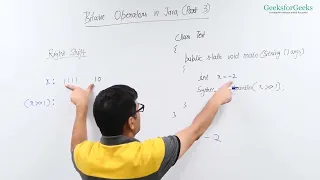 GeeksforGeeks
Bitwise Operators in Java (Part 3)
Right Shift
x: 1111 10
(x>>1):
class Test
{
public static void main (String [] args)
{
int x=-2
System (x>>1);
}
}
-2